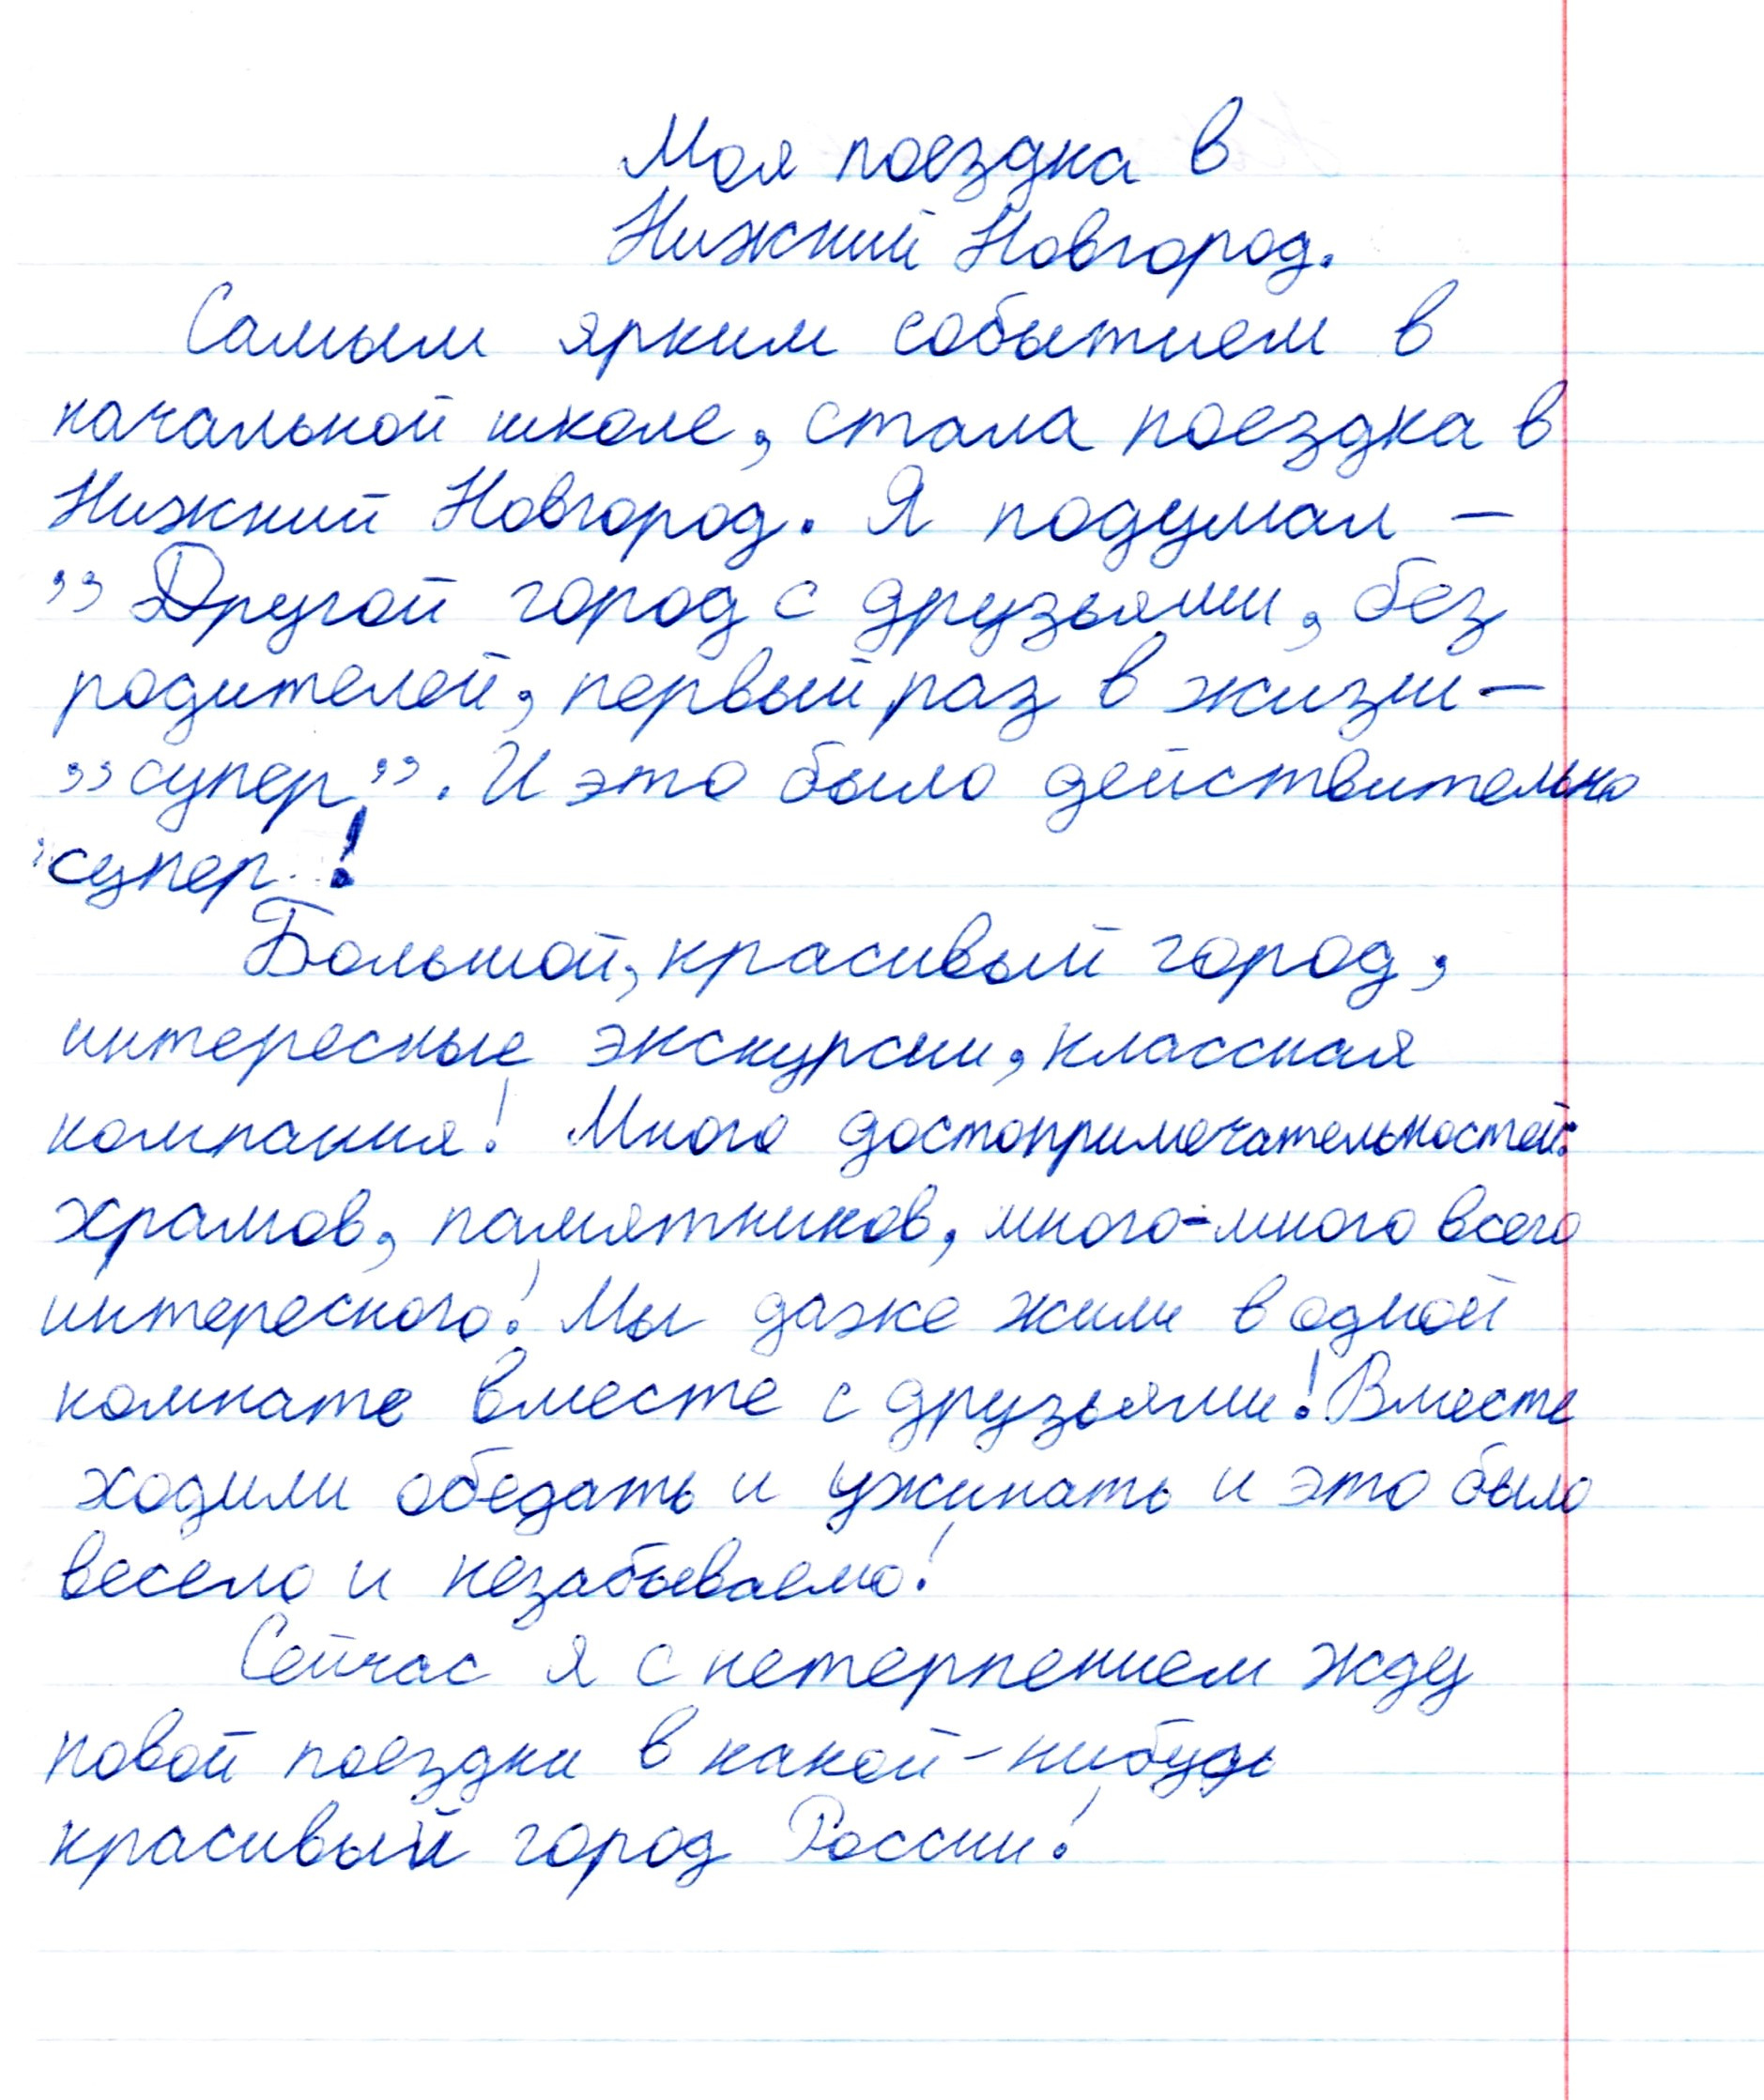 Моя поездка в
Нижний Новгород.
Самым ярким событием в
начальной школе, стала поездка в
Нижний Новгород. Я подумал –
”Другой город с друзьями, без
родителей, первый раз в жизни –
”супер”. И это было действительно
супер!
Большой, красивый город,
интересные экскурсии, классная
компания! Много достопримечательностей:
храмов, памятников, много-много всего
интересного! Мы даже жили в одной
комнате вместе с друзьями! Вместе
ходили обедать и ужинать и это было
весело и незабываемо!
Сейчас я с нетерпением жду
новой поездки в какой-нибудь
красивый город России!